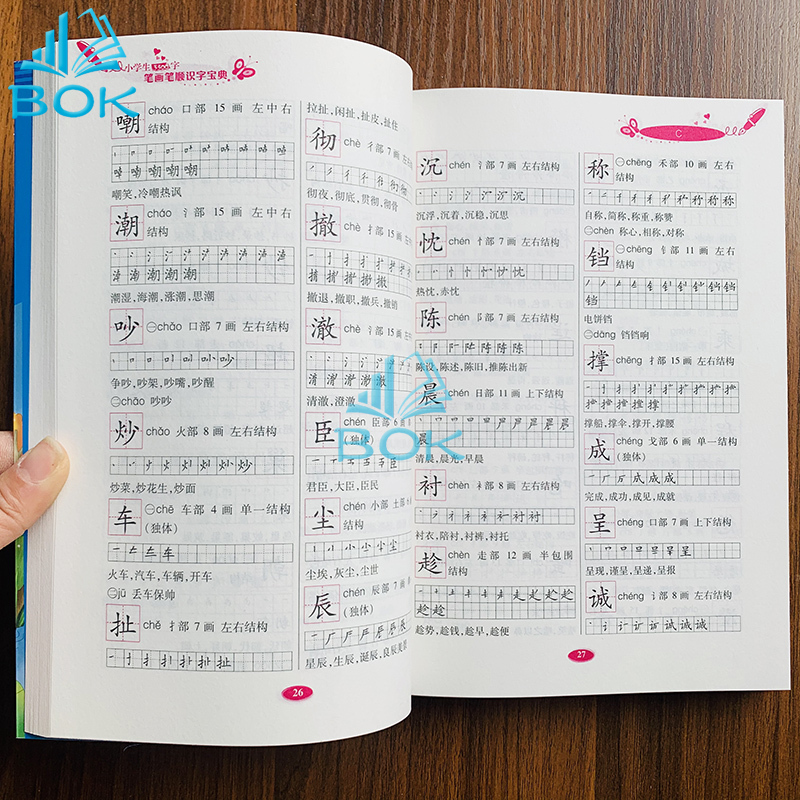 BOK
小学生3500字
笔画笔顺识字宝典
嘲 cháo 口部 15 画 左中右
结构
嘲笑,冷嘲热讽
潮 cháo 氵部 15 画 左中右
结构
潮湿,海潮,涨潮,思潮
吵 ㊀chǎo 口部 7 画 左右结构
争吵,吵架,吵嘴,吵醒
㊁chāo 吵吵
炒 chǎo 火部 8 画 左右结构
炒菜,炒花生,炒面
车 ㊀chē 车部 4 画 单一结构
(独体)
火车,汽车,车辆,开车
㊁jū 丢车保帅
扯 chě 扌部 7 画 左右结构
拉扯,闲扯,扯皮,扯住
彻 chè 彳部 7 画 左右
结构
彻夜,彻底,贯彻,彻骨
撤 chè 扌部 15 画
结构
撤退,撤职,撤兵,撤销
澈 chè 氵部 15 画
结构
清澈,澄澈
臣 chén 臣部 6 画
(独体)
君臣,大臣,臣民
尘 chén 小部 土部
结构
尘埃,灰尘,尘世
辰 chén 辰部 7 画
(独体)
星辰,生辰,诞辰,良辰美景
26
C
沉 chén 氵部 7 画 左右结构
沉浮,沉着,沉稳,沉思
忱 chén 忄部 7 画 左右结构
热忱,赤忱
陈 chén 阝部 7 画 左右结构
陈设,陈述,陈旧,推陈出新
晨 chén 日部 11 画 上下结构
清晨,晨光,早晨
衬 chèn 衤部 8 画 左右结构
衬衣,陪衬,衬裤,衬托
趁 chèn 走部 12 画 半包围
结构
趁势,趁钱,趁早,趁便
称 ㊀chēng 禾部 10 画 左右
结构
自称,简称,称重,称赞
㊁chèn 称心,相称,对称
铛 ㊀chēng 钅部 11 画 左右
结构
电饼铛
㊁dāng 铛铛响
撑 chēng 扌部 15 画 左右结构
撑船,撑伞,撑开,撑腰
成 chéng 戈部 6 画 单一结构
(独体)
完成,成功,成见,成就
呈 chéng 口部 7 画 上下结构
呈现,谨呈,呈递,呈报
诚 chéng 讠部 8 画 左右结构
27
BOK